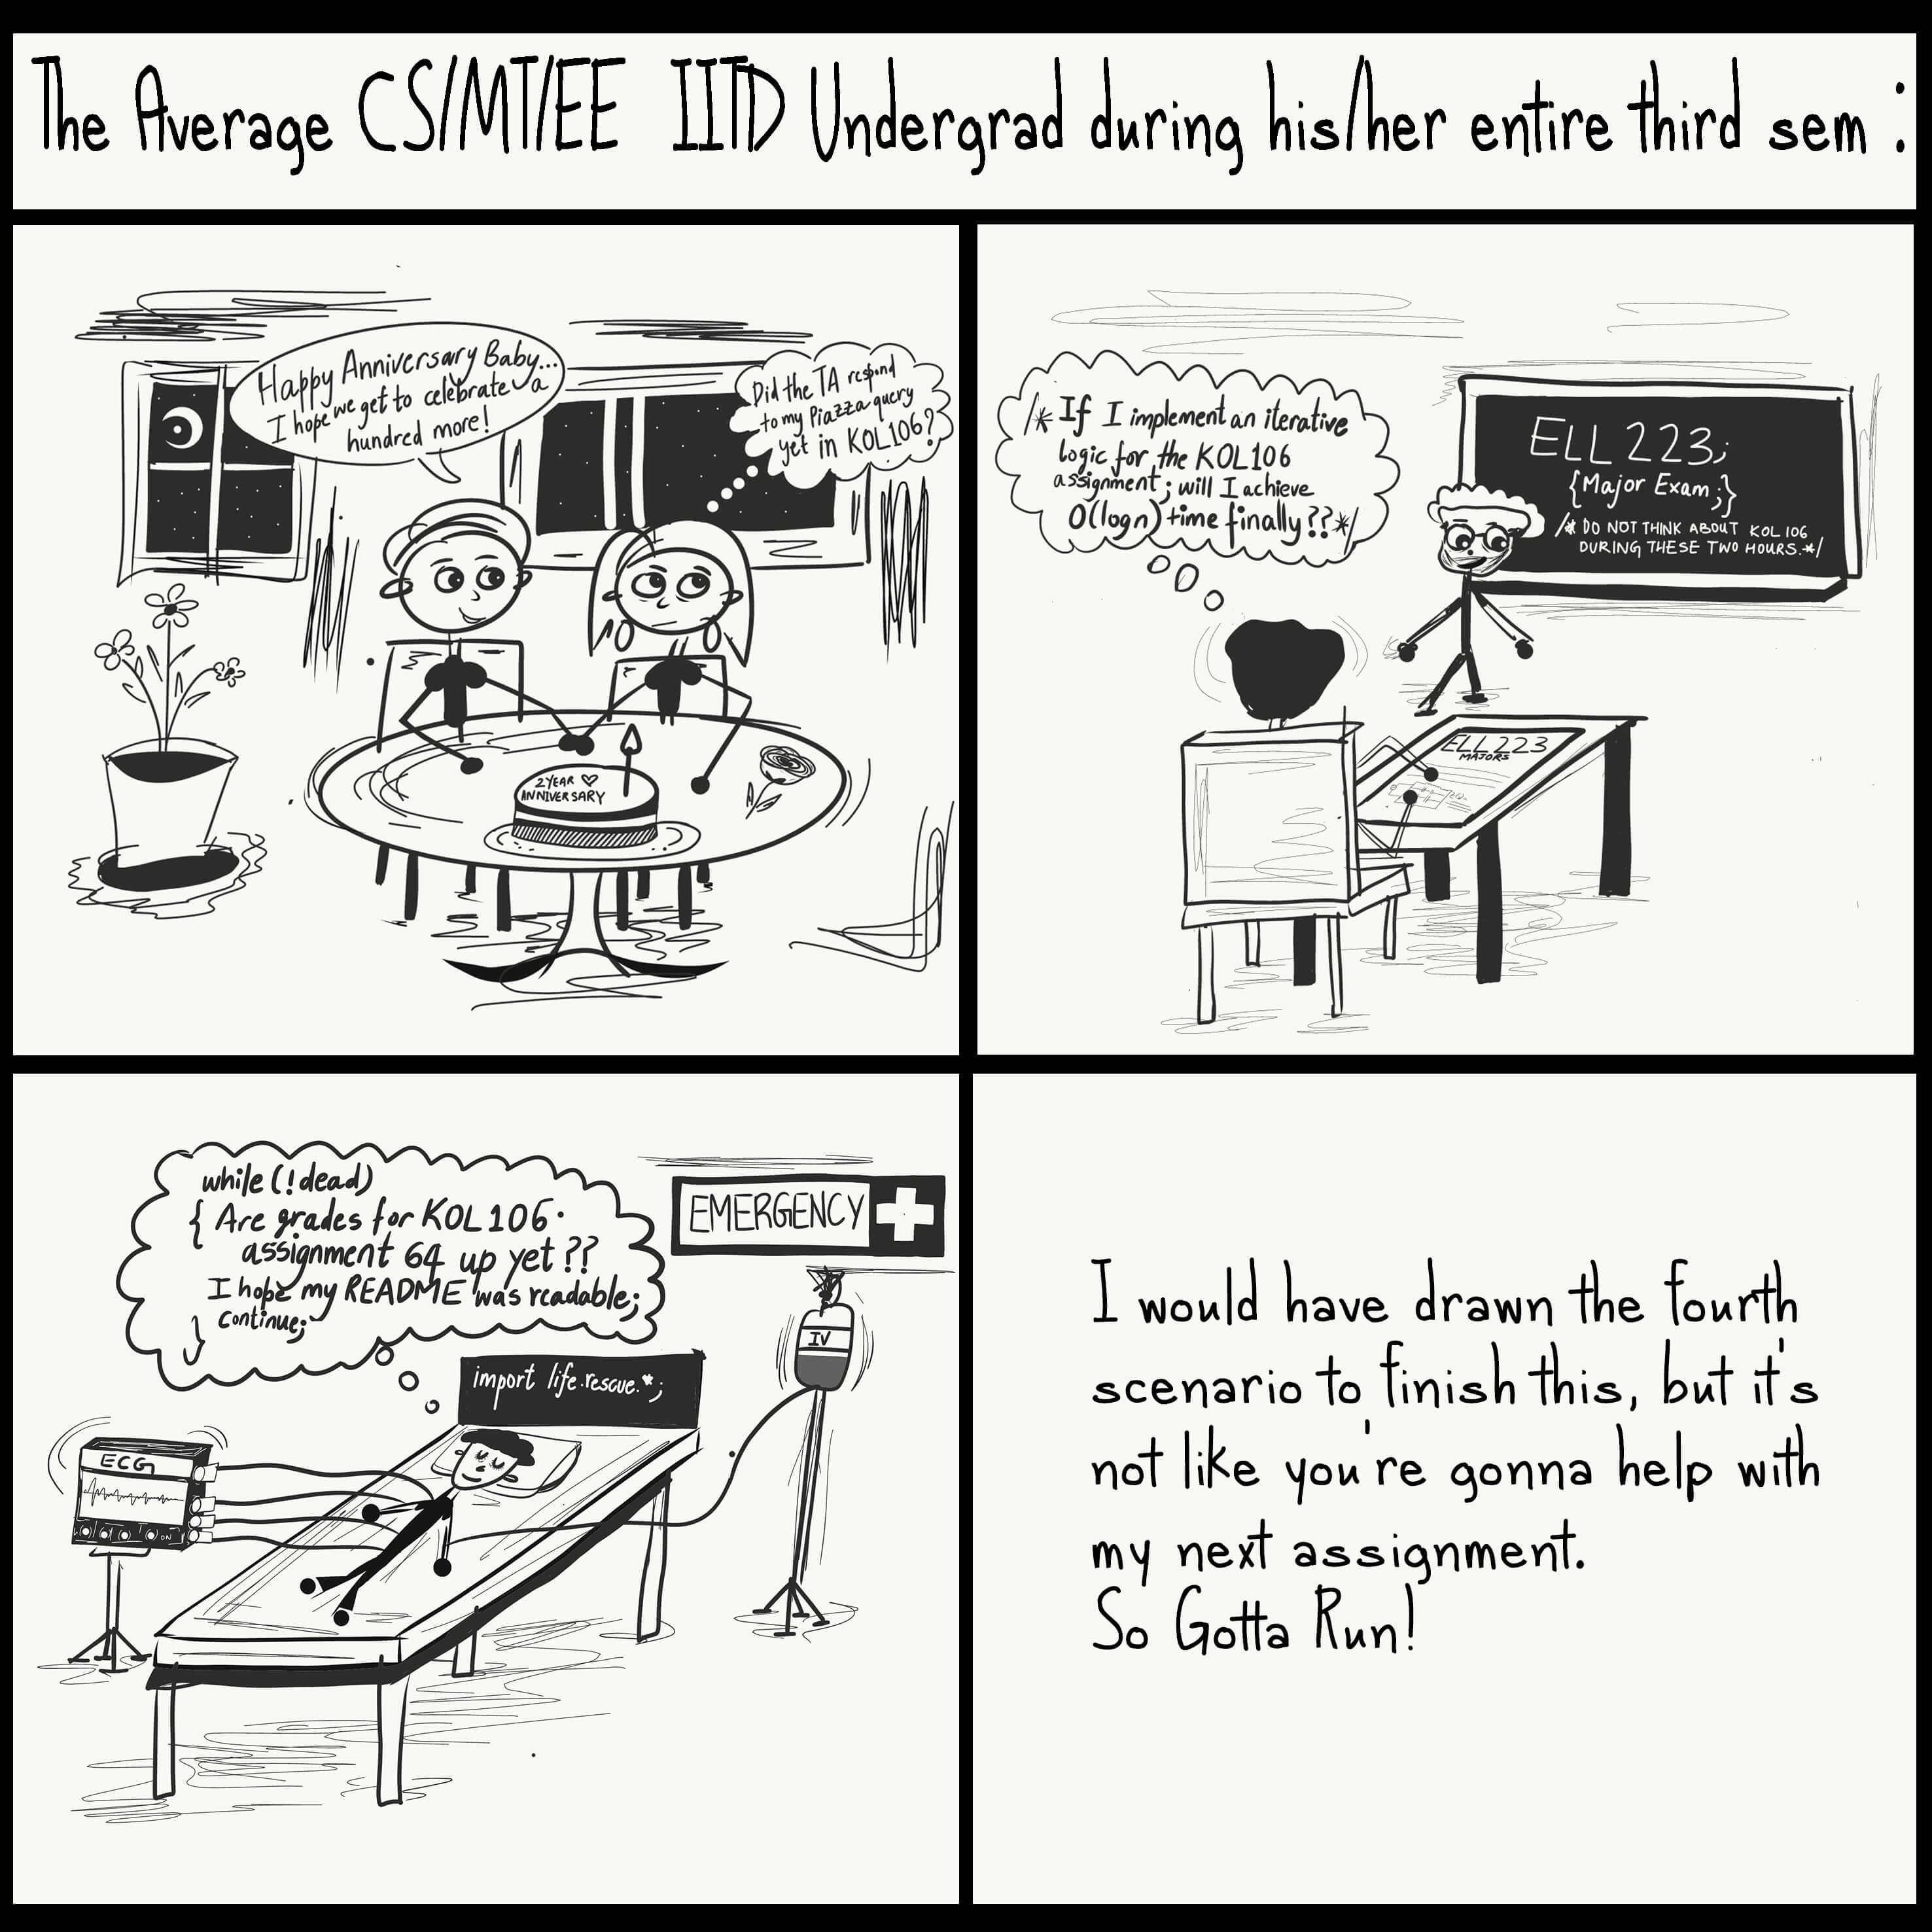 The Average CS/MT/EE IITD Undergrad during his/her entire third sem :
Happy Anniversary Baby...
I hope we get to celebrate a
hundred more!
Did the TA respond
to my Piazza query
yet in KOL106?
2 YEAR ♡
ANNIVERSARY
/* If I implement an iterative
logic for the KOL106
assignment; will I achieve
O(logn) time finally??*/
ELL 223;
{Major Exam;}
/* DO NOT THINK ABOUT KOL 106
DURING THESE TWO HOURS.*/
ELL 223
MAJORS
while (!dead)
{ Are grades for KOL106
assignment 64 up yet ??
I hope my README was readable;
continue;
}
EMERGENCY
IV
import life.rescue.*;
ECG
ON
I would have drawn the fourth
scenario to finish this, but it's
not like you're gonna help with
my next assignment.
So Gotta Run!